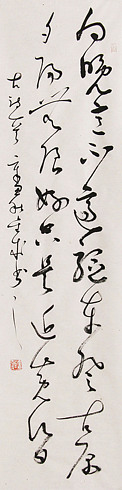 向晚意不適驅車登古原
夕陽無限好只是近黃昏
古詩一首